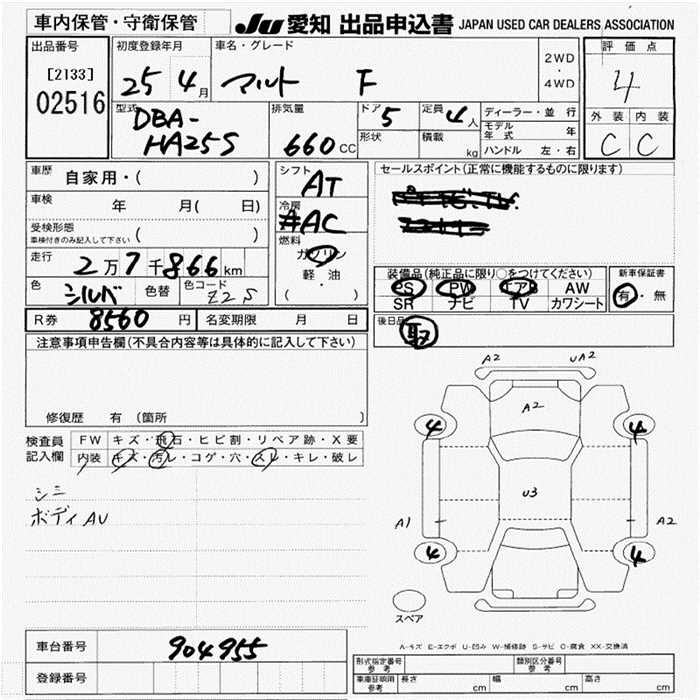 車内保管・守衛保管
JU 愛知 出品申込書 JAPAN USED CAR DEALERS ASSOCIATION
出品番号
[2133]
02516
初度登録年月
25 4月
車名・グレード
アルト F
2WD
・
4WD
評価点
4
外装 内装
C C
型式
DBA-
HA25S
排気量
660 CC
ドア 5
定員 4人
形状
積載 kg
ディーラー・並行
モデル年式 年
ハンドル 左・右
車歴 自家用・( )
車検 年 月( 日)
受検形態
車検付きのみ記入して下さい ( )
走行 2万7千866km
色 シルバ 色替 色コード Z2S
シフト
AT
冷房
AC
燃料
ガソリン
軽・油
( )
セールスポイント(正常に機能するものに限ります)
装備品(純正品に限り○をつけてください)
PS PW エアB AW
SR ナビ TV カワシート
新車保証書
有・無
後日品
取
R券 8560円 名変期限 月 日
注意事項申告欄(不具合内容等は具体的に記入して下さい)
修復歴 有 (箇所 )
検査員
記入欄
FW キズ・飛石・ヒビ割・リペア跡・X要
内装 キズ・汚レ・コゲ・穴・スレ・キレ・破レ
シミ
ボディAU
A2 UA2
A2
4 4
U3
A1 A2
4 4
スペア
A-キズ E-エクボ U-凹み W-補修跡 S-サビ C-腐食 XX-交換済
車台番号 904955
登録番号
形式指定番号
参考
類別区分番号
参考
車庫証明用
参考
長さ cm 幅 cm 高さ cm